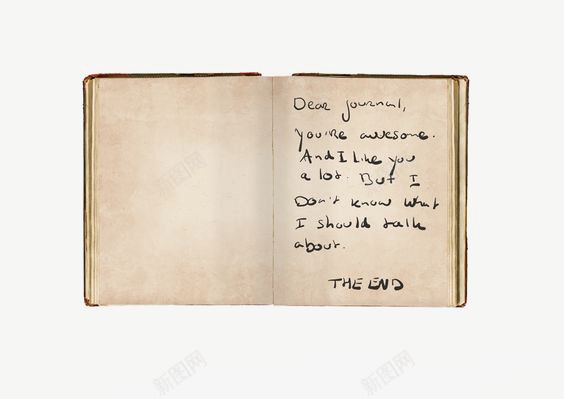 Dear journal,
you're awesome.
And I like you
a lot. But I
Don't know what
I should talk
about.
THE END
新图网
新图网
新图网
新图网